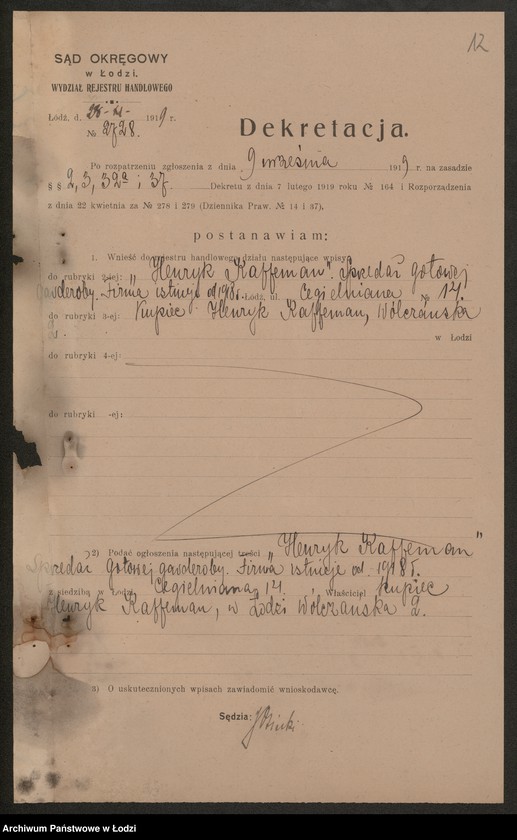 12
SĄD OKRĘGOWY
w Łodzi,
WYDZIAŁ REJESTRU HANDLOWEGO
Łódź, d. 1919 r.
№ 2728.
Dekretacja.
Po rozpatrzeniu zgłoszenia z dnia 9 września 1919 r. na zasadzie
§ § 2, 3, 32a i 37. Dekretu z dnia 7 lutego 1919 roku № 164 i Rozporządzenia
z dnia 22 kwietnia za № 278 i 279 (Dziennika Praw. № 14 i 37),
postanawiam:
1. Wnieść do rejestru handlowego działu następujące wpisy
do rubryki 2-ej: „Henryk Kaffeman". Sprzedaż gotowej
garderoby. Firma istnieje od 1918 r. Łódź, ul. Cegielniana № 14.
do rubryki 3-ej: Kupiec Henryk Kaffeman, Wólczańska
2. w Łodzi
do rubryki 4-ej:
do rubryki -ej:
2) Podać ogłoszenia następującej treści „Henryk Kaffeman"
Sprzedaż gotowej garderoby. Firma istnieje od 1918 r.
z siedzibą w Łodzi, Cegielniana 14. Właściciel kupiec
Henryk Kaffeman, w Łodzi Wólczańska 2.
3) O uskutecznionych wpisach zawiadomić wnioskodawcę.
Sędzia:
Archiwum Państwowe w Łodzi